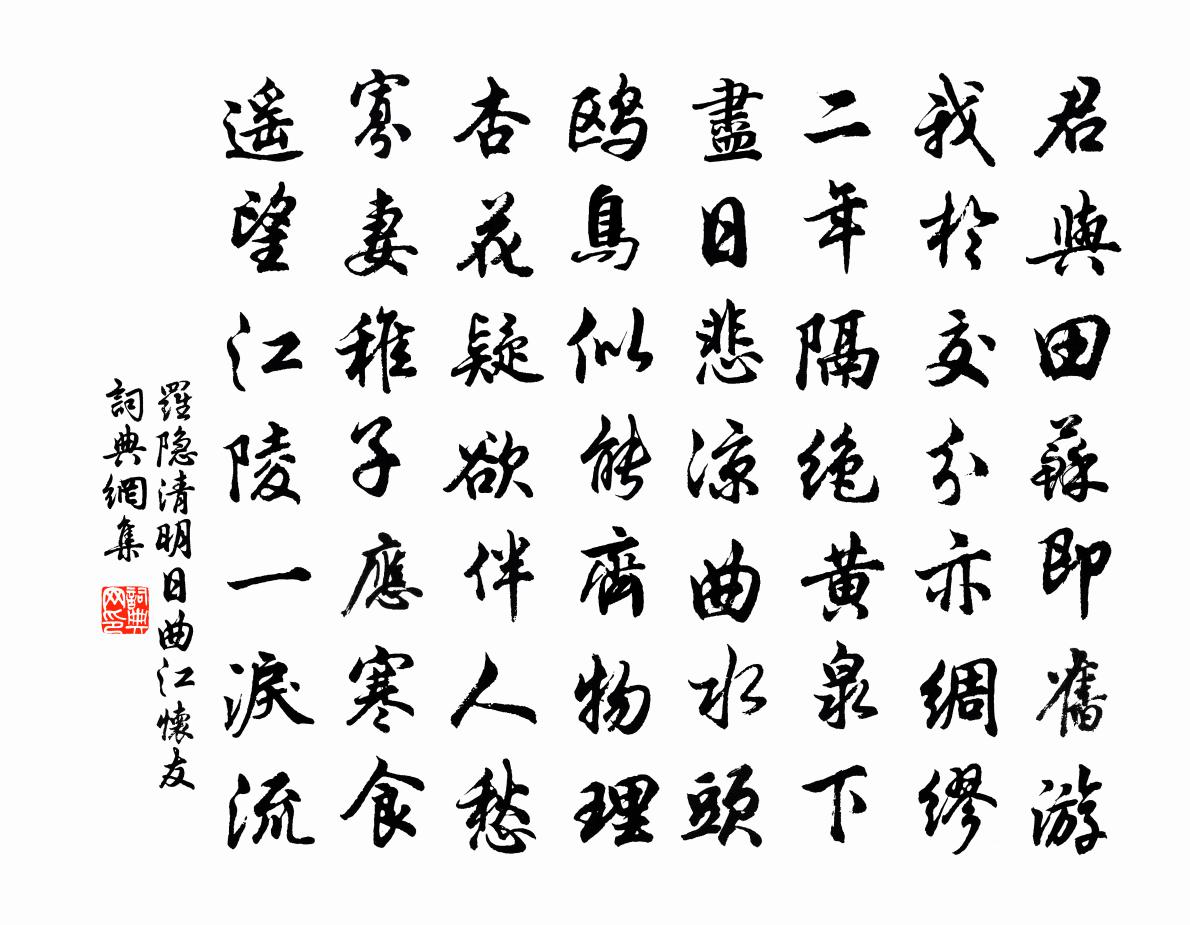 君與田蘇即舊游
我於交分亦綢繆
二年隔絶黄泉下
盡日悲涼曲水頭
鷗鳥似能齊物理
杏花疑欲伴人愁
寡妻稚子應寒食
遥望江陵一淚流
羅隐清明日曲江懷友
詞典網集
詞典网印